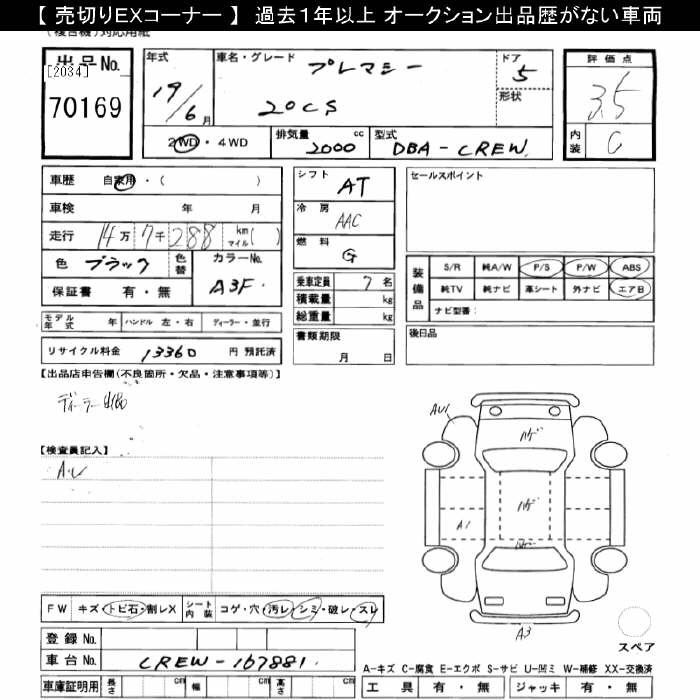 【 売切りEXコーナー 】 過去1年以上 オークション出品歴がない車両
(複合機)対応用紙
出品No.
[2034]
70169
年式
19/6月
車名・グレード
プレマシー
20CS
ドア
5
形状
評価点
3.5
内装
C
2WD・4WD
排気量
2000
cc
型式
DBA-CREW
車歴 自家用・( )
車検 年 月
走行 14万 7千 288 km マイル( )
色 ブラック
色替
カラーNo.
A3F
保証書 有・無
モデル年式 年 ハンドル 左・右 ディーラー・並行
リサイクル料金 13360 円 預託済
シフト
AT
冷房
AAC
燃料
G
乗車定員 7 名
積載量 kg
総重量 kg
書類期限
月 日
セールスポイント
装備品
S/R 純A/W P/S P/W ABS
純TV 純ナビ 革シート 外ナビ エアB
ナビ型番:
後日品
【出品店申告欄(不良箇所・欠品・注意事項等)】
ディーラー出品
【検査員記入】
AU
AU1
ハゲ
ハゲ
A1
ハゲ
A3
スペア
FW キズ・トビ石・割レX
シート内装
コゲ・穴・汚レ・シミ・破レ・スレ
登録No.
車台No. CREW-167881
車庫証明用 長さ cm 幅 cm 高さ cm
A-キズ C-腐食 E-エクボ S-サビ U-凹ミ W-補修 XX-交換済
工具 有・無 ジャッキ 有・無